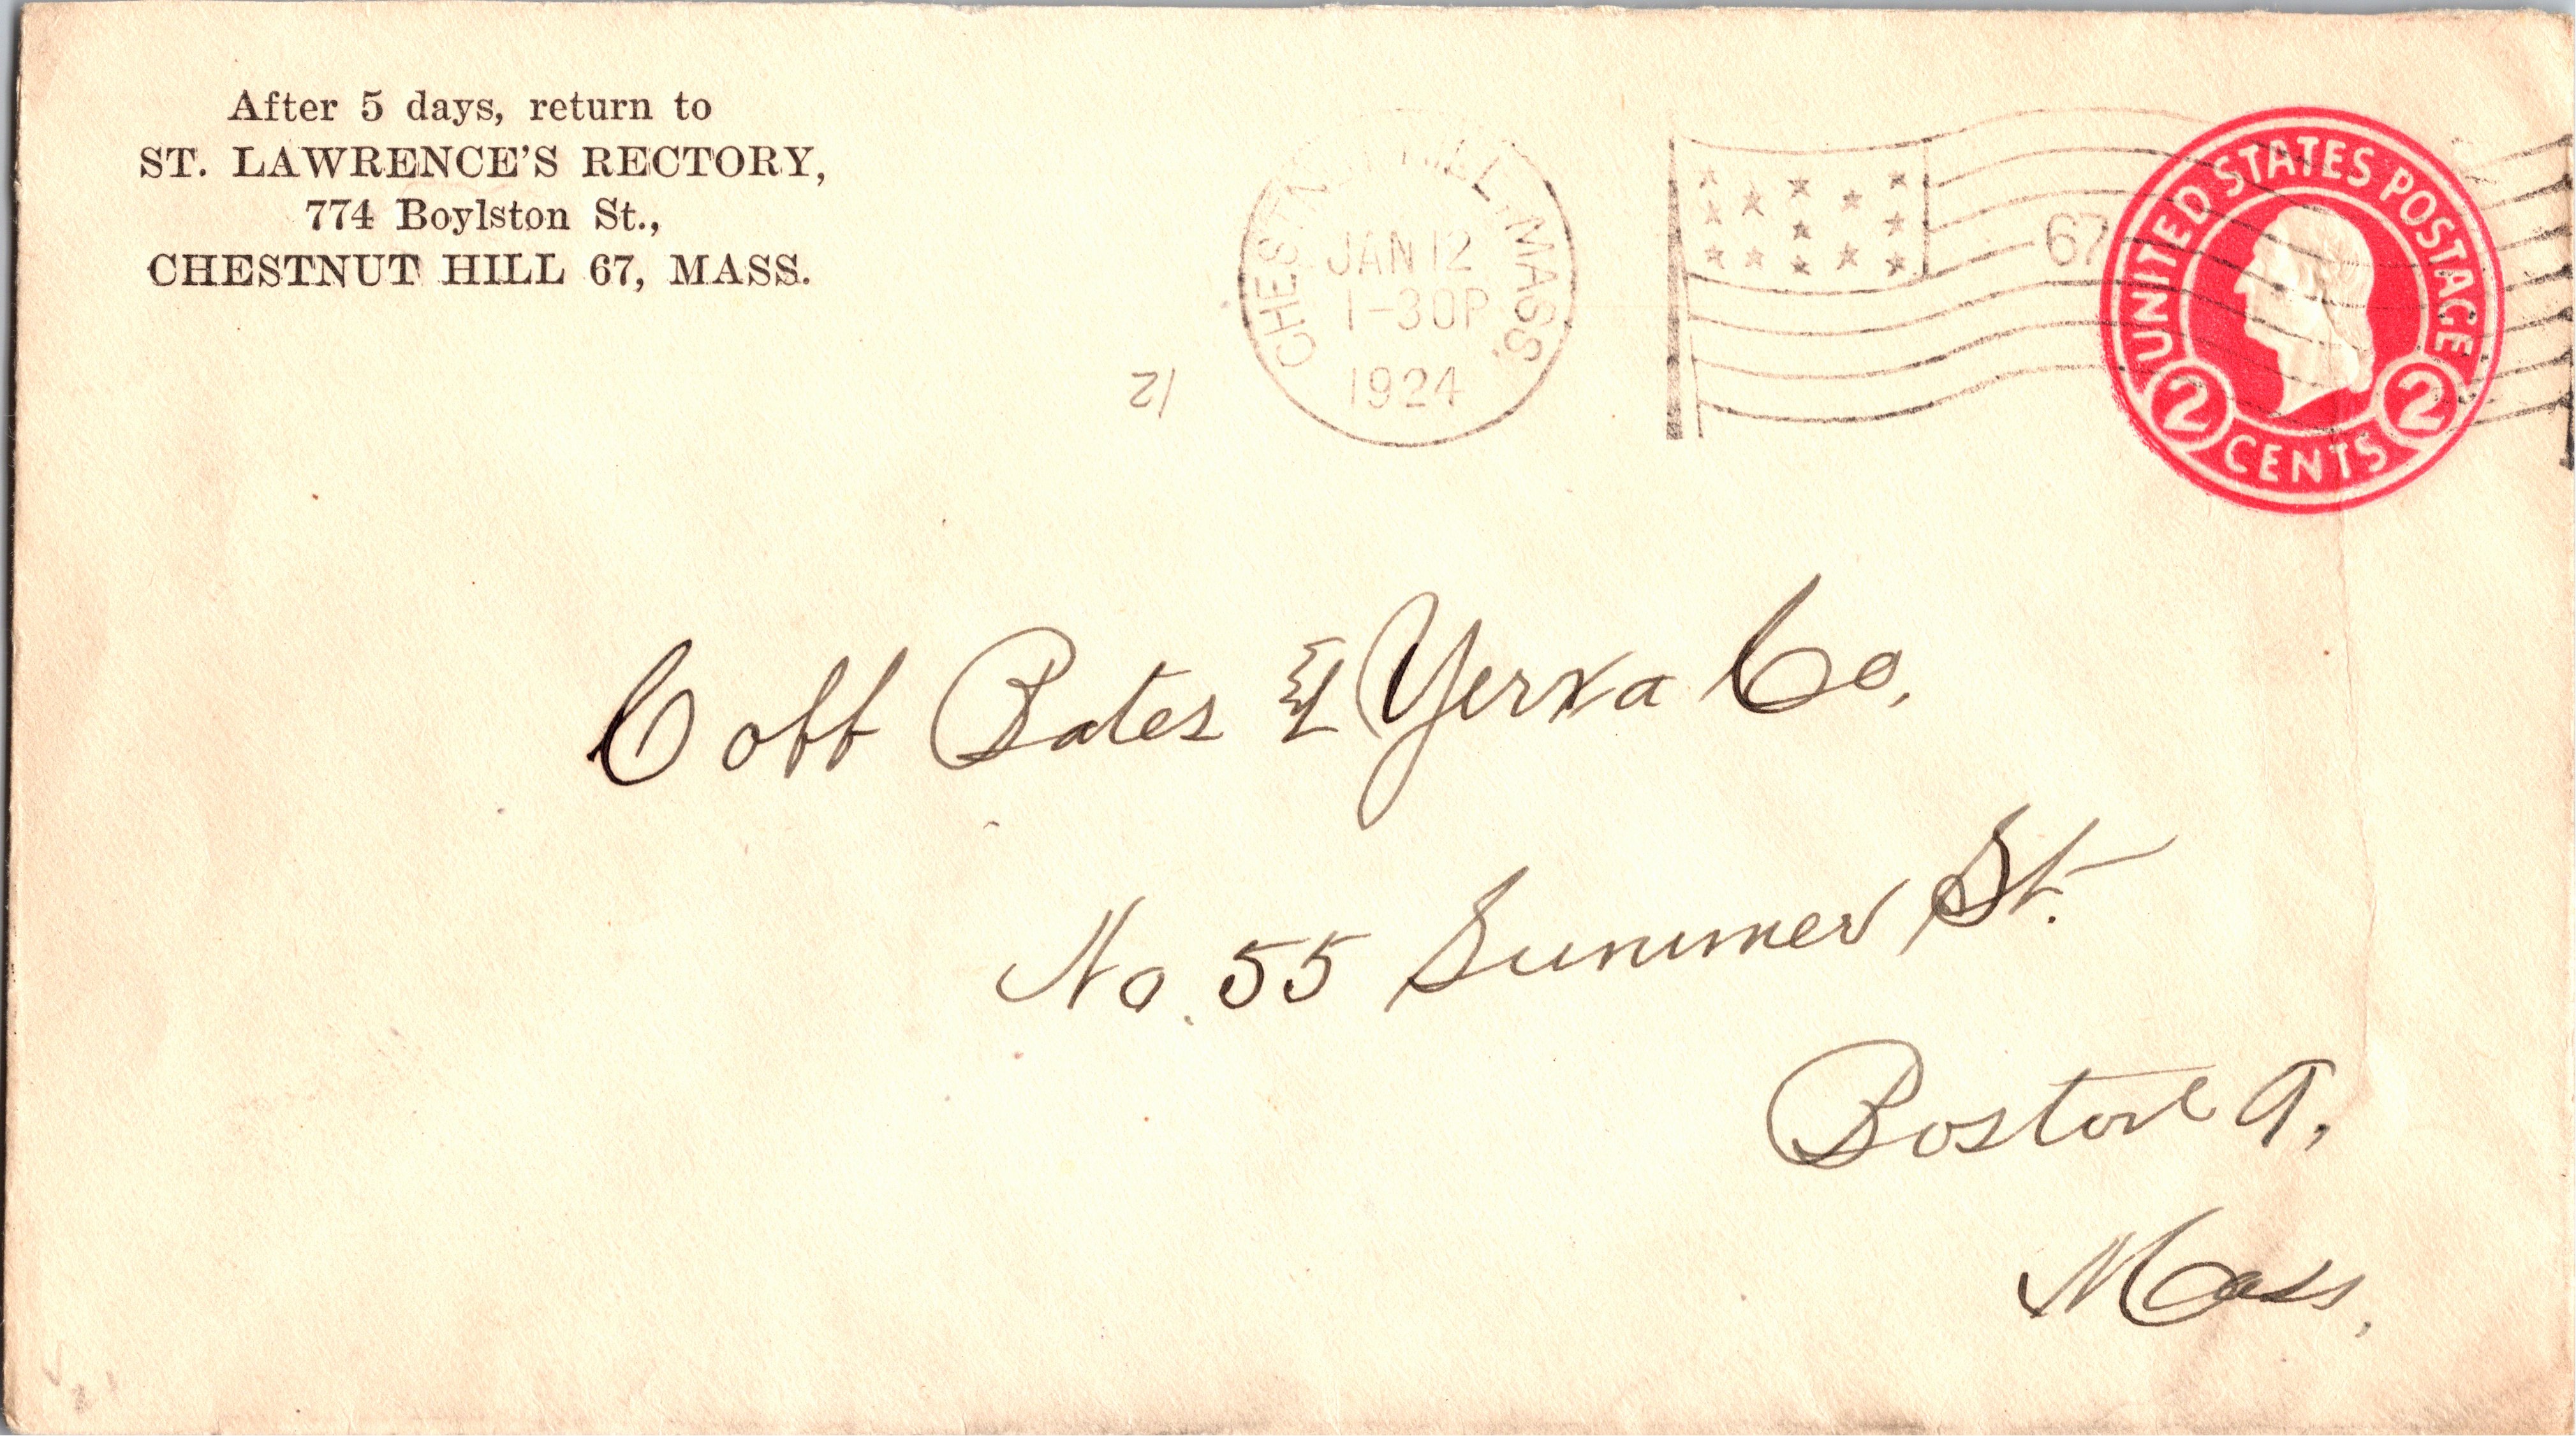 After 5 days, return to
ST. LAWRENCE'S RECTORY,
774 Boylston St.,
CHESTNUT HILL 67, MASS.
CHESTNUT HILL, MASS.
JAN 12
1-30P
1924
67
UNITED STATES POSTAGE
2 CENTS 2
21
Cobb Bates & Yerxa Co.
No. 55 Summer St.
Boston 9,
Mass.